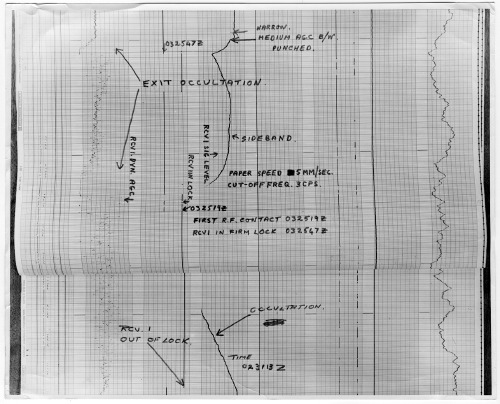 NARROW.
MEDIUM AGC B/W.
PUNCHED.
032547Z
EXIT OCCULTATION
SIDEBAND.
RCV1 DYN. AGC
RCV1 IN LOCK
RCV1 SIG LEVEL
PAPER SPEED 5MM/SEC.
CUT-OFF FREQ. 3CPS.
032519Z
FIRST R.F. CONTACT 032519Z
RCV1 IN FIRM LOCK 032547Z
OCCULTATION.
RCV. 1
OUT OF LOCK
TIME
023113Z